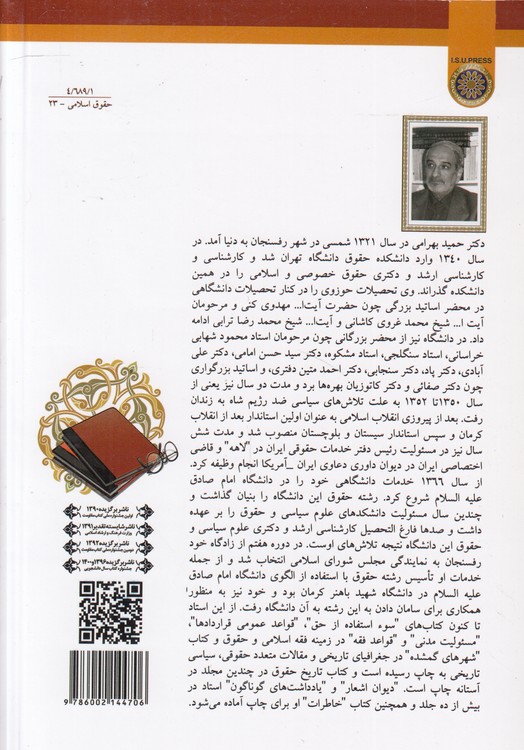 I.S.U.PRESS
۴/۶۸۹/۱
حقوق اسلامی - ۲۳
دکتر حمید بهرامی در سال ۱۳۲۱ شمسی در شهر رفسنجان به دنیا آمد. در
سال ۱۳۴۰ وارد دانشکده حقوق دانشگاه تهران شد و کارشناسی و
کارشناسی ارشد و دکتری حقوق خصوصی و اسلامی را در همین
دانشکده گذراند. وی تحصیلات حوزوی را در کنار تحصیلات دانشگاهی
در محضر اساتید بزرگی چون حضرت آیت‌ا... مهدوی کنی و مرحومان
آیت ا... شیخ محمد غروی کاشانی و آیت‌ا... شیخ محمد رضا ترابی ادامه
داد. در دانشگاه نیز از محضر بزرگانی چون مرحومان استاد محمود شهابی
خراسانی، استاد سنگلجی، استاد مشکوه، دکتر سید حسن امامی، دکتر علی
آبادی، دکتر پاد، دکتر سنجابی، دکتر احمد متین دفتری، و اساتید بزرگواری
چون دکتر صفائی و دکتر کاتوزیان بهره‌ها برد و مدت دو سال نیز یعنی از
سال ۱۳۵۰تا ۱۳۵۲ به علت تلاش‌های سیاسی ضد رژیم شاه به زندان
رفت. بعد از پیروزی انقلاب اسلامی به عنوان اولین استاندار بعد از انقلاب
کرمان و سپس استاندار سیستان و بلوچستان منصوب شد و مدت شش
سال نیز در مسئولیت رئیس دفتر خدمات حقوقی ایران در "لاهه" و قاضی
اختصاصی ایران در دیوان داوری دعاوی ایران _آمریکا انجام وظیفه کرد.
از سال ۱۳۶۶ خدمات دانشگاهی خود را در دانشگاه امام صادق
علیه السلام شروع کرد. رشته حقوق این دانشگاه را بنیان گذاشت و
چندین سال مسئولیت دانشکدهای علوم سیاسی و حقوق را بر عهده
داشت و صدها فارغ التحصیل کارشناسی ارشد و دکتری علوم سیاسی و
حقوق این دانشگاه نتیجه تلاش‌های اوست. در دوره هفتم از زادگاه خود
رفسنجان به نمایندگی مجلس شورای اسلامی انتخاب شد و از جمله
خدمات او تأسیس رشته حقوق با استفاده از الگوی دانشگاه امام صادق
علیه السلام در دانشگاه شهید باهنر کرمان بود و خود نیز به منظور
همکاری برای سامان دادن به این رشته به آن دانشگاه رفت. از این استاد
تا کنون کتاب‌های "سوء استفاده از حق"، "قواعد عمومی قراردادها"،
"مسئولیت مدنی" و "قواعد فقه" در زمینه فقه اسلامی و حقوق و کتاب
"شهرهای گمشده" در جغرافیای تاریخی و مقالات متعدد حقوقی، سیاسی
تاریخی به چاپ رسیده است و کتاب تاریخ حقوق در چندین مجلد در
آستانه چاپ است. "دیوان اشعار" و "یادداشت‌های گوناگون" استاد در
بیش از ده جلد و همچنین کتاب "خاطرات" او برای چاپ آماده می‌شود.
ناشر برگزیده ۱۳۹۰
اولین جشنواره ملی کتاب مقاومت
ناشر شایسته تقدیر ۱۳۹۱
وزارت فرهنگ و ارشاد اسلامی
ناشر برگزیده ۱۳۹۲
دومین جشنواره ملی کتاب مقاومت
ناشر برگزیده ۱۳۹۶و۱۴۰۰
جشنواره کتاب سال دانشجویی
9 786002 144706